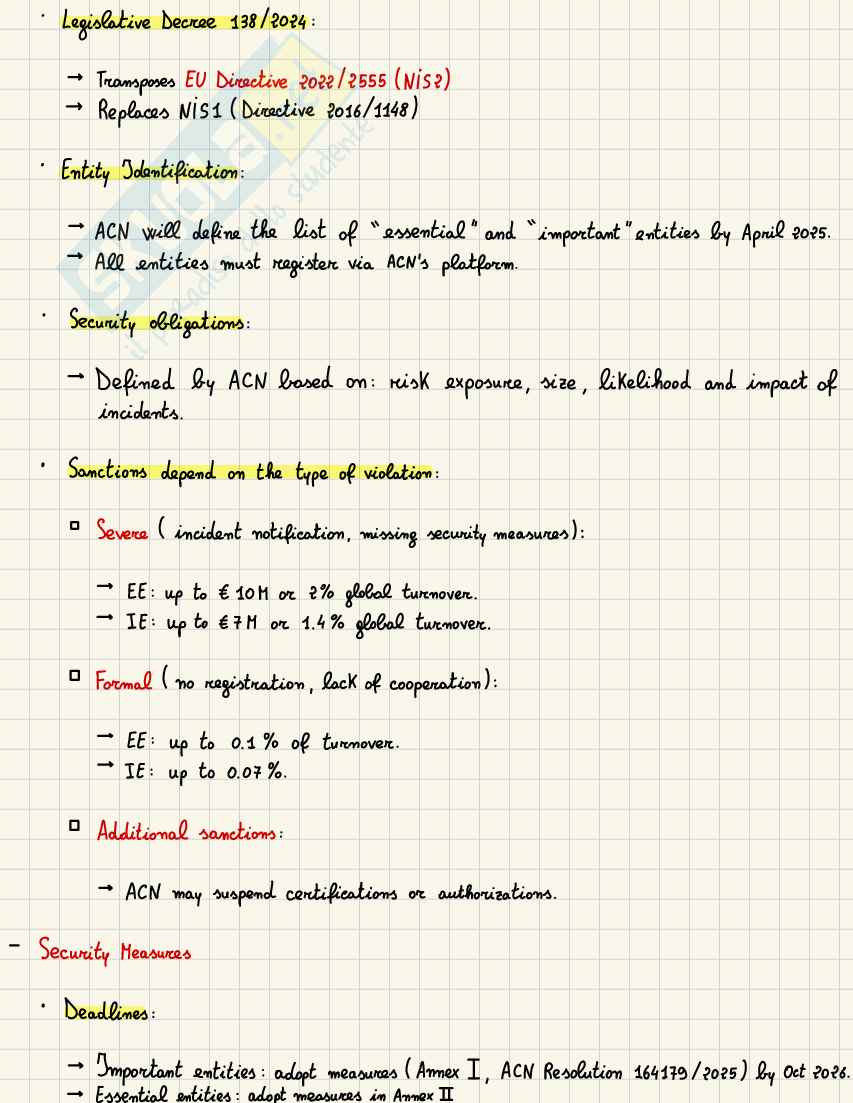 · Legislative Decree 138/2024:
→ Transposes EU Directive 2022/2555 (NiS2)
→ Replaces NiS1 (Directive 2016/1148)
· Entity Identification:
→ ACN will define the list of "essential" and "important" entities by April 2025.
→ All entities must register via ACN's platform.
· Security obligations:
→ Defined by ACN based on: risk exposure, size, likelihood and impact of
incidents.
· Sanctions depend on the type of violation:
▫ Severe (incident notification, missing security measures):
→ EE: up to €10M or 2% global turnover.
→ IE: up to €7M or 1.4% global turnover.
▫ Formal (no registration, lack of cooperation):
→ EE: up to 0.1% of turnover.
→ IE: up to 0.07%.
▫ Additional sanctions:
→ ACN may suspend certifications or authorizations.
- Security Measures
· Deadlines:
→ Important entities: adopt measures (Annex I, ACN Resolution 164179/2025) by Oct 2026.
→ Essential entities: adopt measures in Annex II
SKUOLA.net
il paradiso dello studente